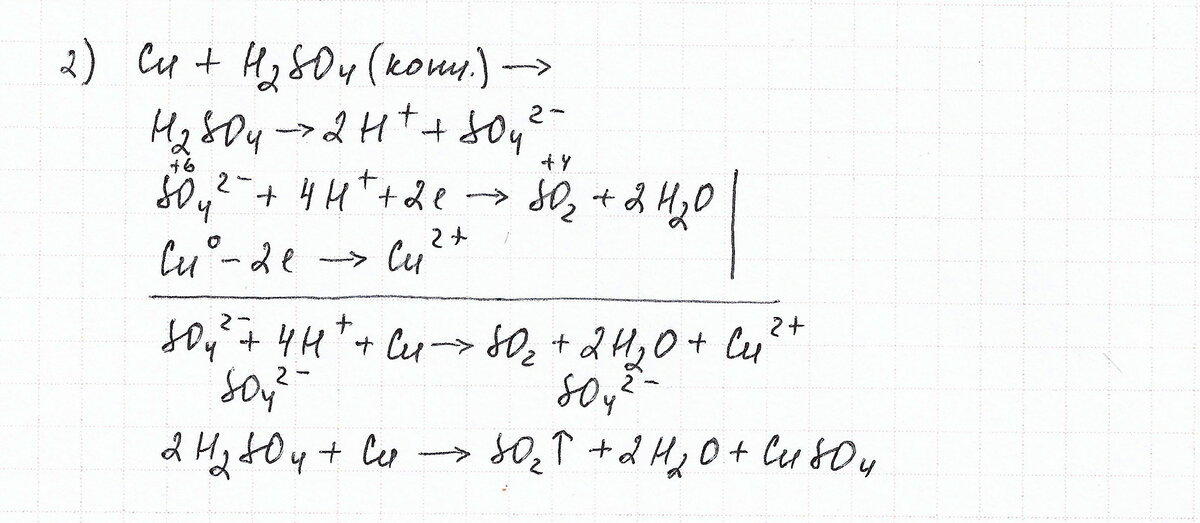 2) Cu + H₂SO₄ (конц.) →
H₂SO₄ → 2H⁺ + SO₄²⁻
+6 +4
SO₄²⁻ + 4H⁺ + 2e → SO₂ + 2H₂O
Cu⁰ - 2e → Cu²⁺
SO₄²⁻ + 4H⁺ + Cu → SO₂ + 2H₂O + Cu²⁺
SO₄²⁻ SO₄²⁻
2H₂SO₄ + Cu → SO₂↑ + 2H₂O + CuSO₄